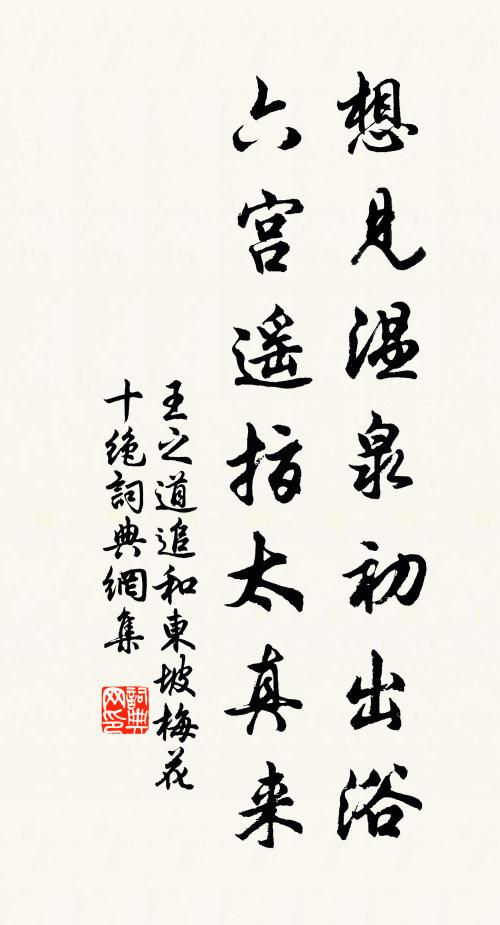 想見温泉初出浴
六宮遥指太真来
王之道追和東坡梅花
十絶詞典網集
詞典网印